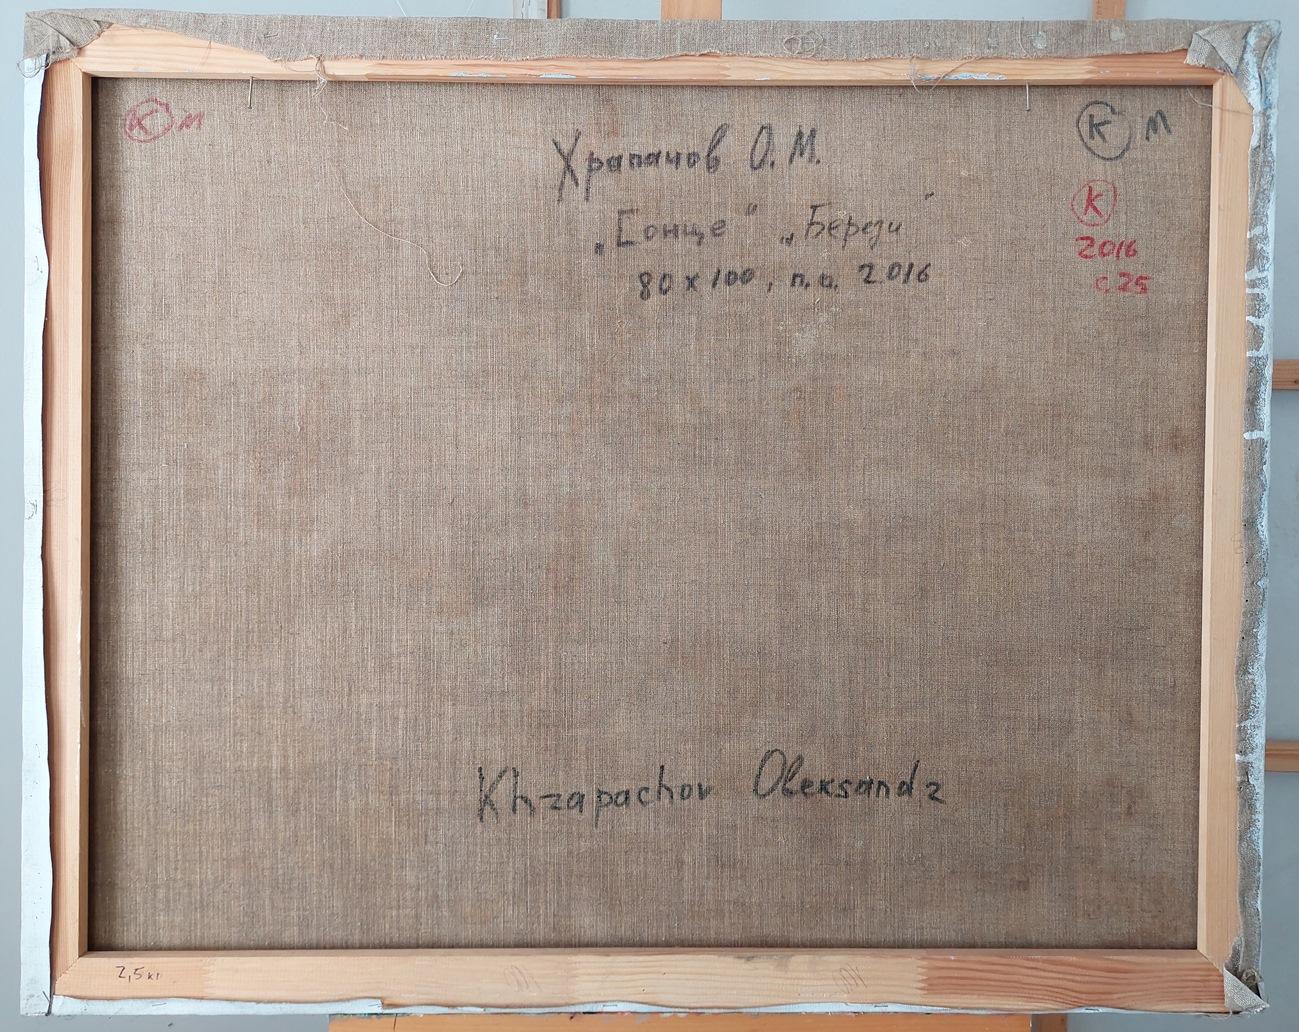 K M
K M
Храпачов О. М.
K
„Сонце" „Берези"
2016
80 x 100, п.о. 2016
с. 25
Khrapachov Oleksandr
2,5 кг